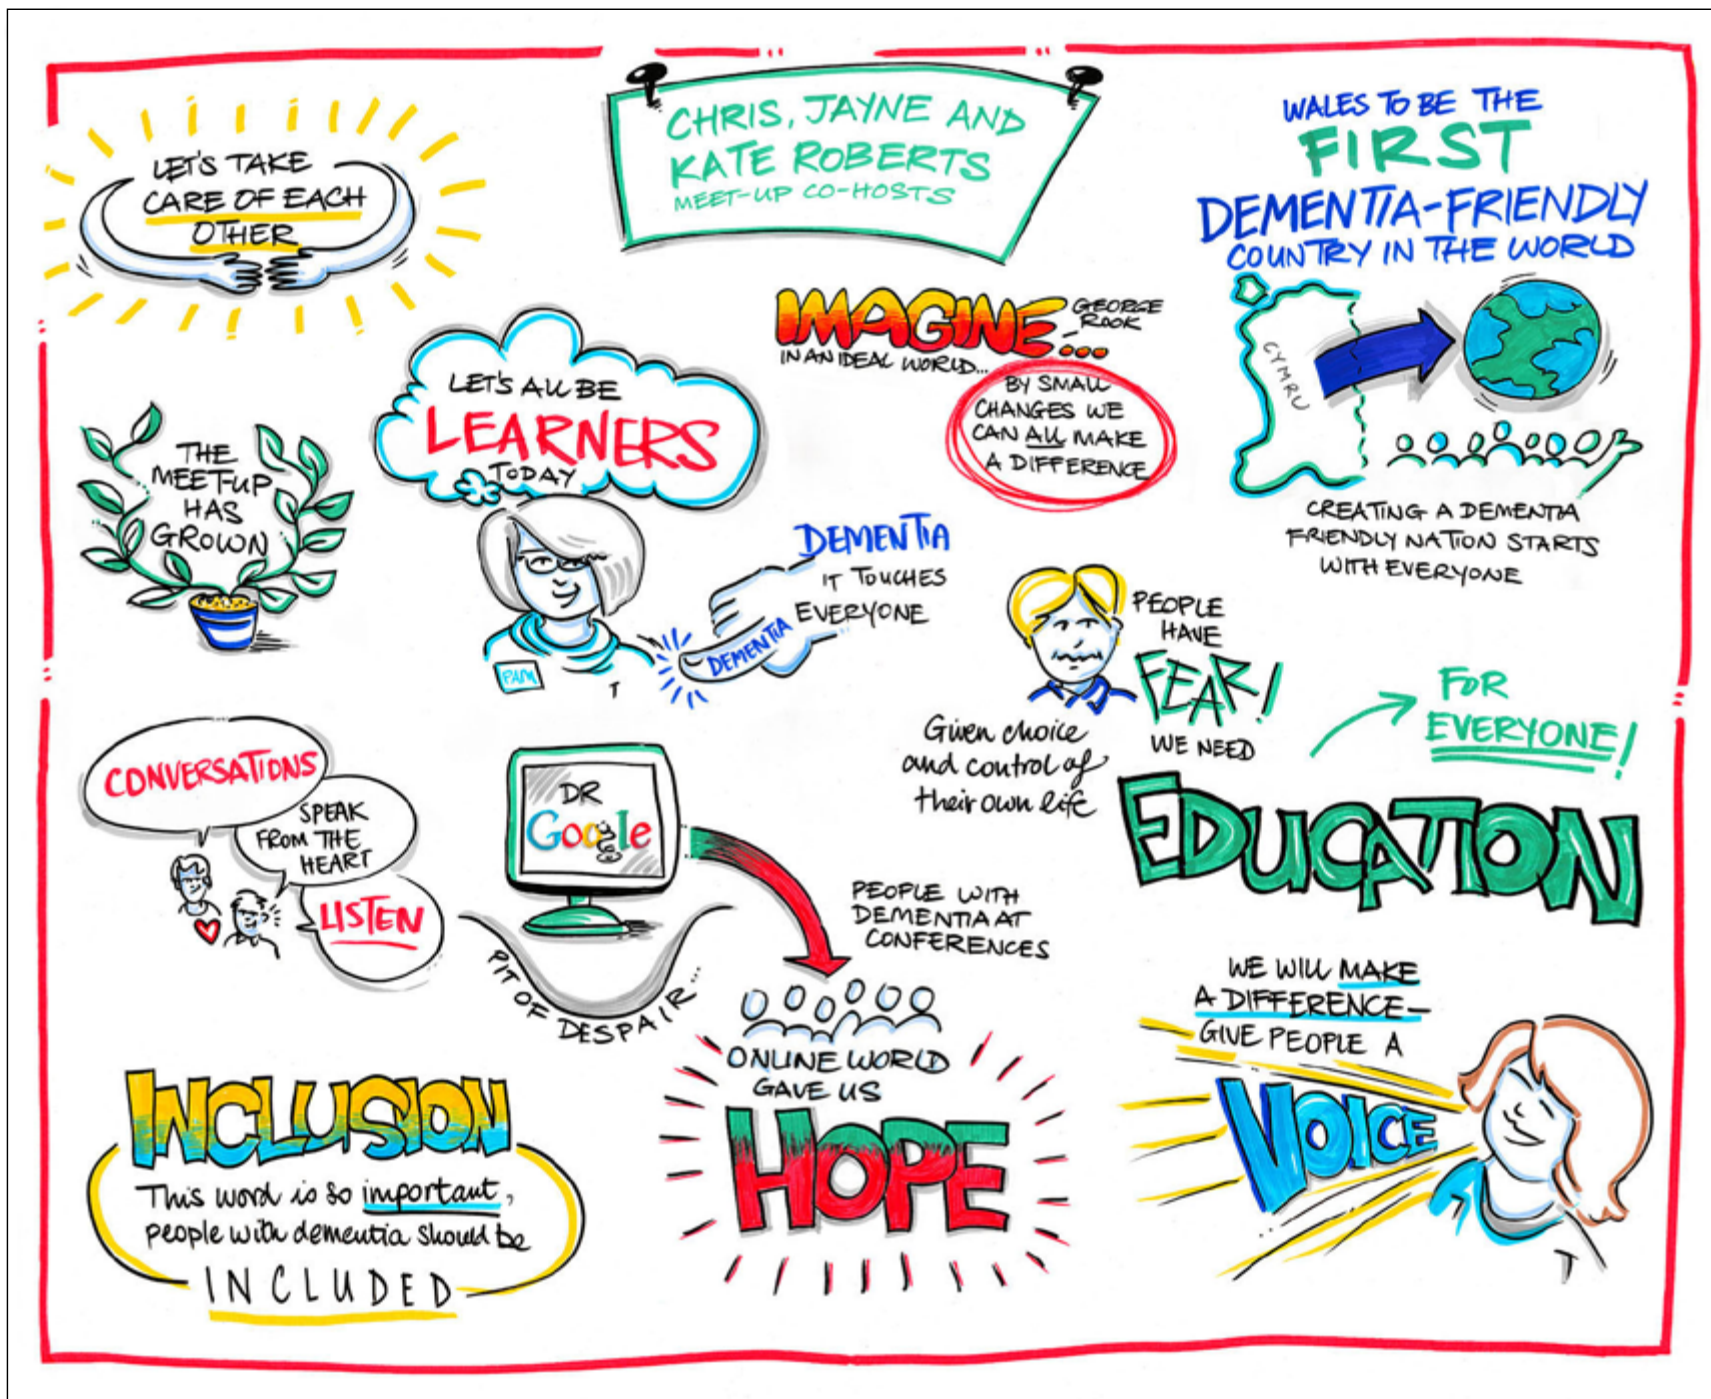 CHRIS, JAYNE AND
KATE ROBERTS
MEET-UP CO-HOSTS
LET'S TAKE
CARE OF EACH
OTHER
WALES TO BE THE
FIRST
DEMENTIA-FRIENDLY
COUNTRY IN THE WORLD
CYMRU
CREATING A DEMENTIA
FRIENDLY NATION STARTS
WITH EVERYONE
IMAGINE...
GEORGE
ROOK
IN AN IDEAL WORLD...
BY SMALL
CHANGES WE
CAN ALL MAKE
A DIFFERENCE
LET'S ALL BE
LEARNERS
TODAY
PAM
THE
MEET-UP
HAS
GROWN
DEMENTIA
IT TOUCHES
EVERYONE
DEMENTIA
PEOPLE
HAVE
FEAR!
WE NEED
EDUCATION
FOR
EVERYONE!
Given choice
and control of
their own life
CONVERSATIONS
SPEAK
FROM THE
HEART
LISTEN
DR
Google
PIT OF DESPAIR...
PEOPLE WITH
DEMENTIA AT
CONFERENCES
ONLINE WORLD
GAVE US
HOPE
WE WILL MAKE
A DIFFERENCE-
GIVE PEOPLE A
VOICE
INCLUSION
This word is so important,
people with dementia should be
INCLUDED